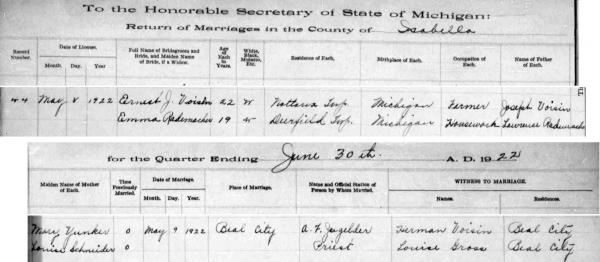 To the Honorable Secretary of State of Michigan:
Return of Marriages in the County of Isabella
Record Number. Date of License. Full Name of Bridegroom and Bride, and Maiden Name of Bride, if a Widow. Age of Each in Years. White, Black, Mulatto, Etc. Residence of Each. Birthplace of Each. Occupation of Each. Name of Father of Each.
Month. Day. Year
44 May 8 1922 Ernest J. Voisin 22 W Nottawa Twp. Michigan Farmer Joseph Voisin
Emma Rademacher 19 W Deerfield Twp. Michigan Housework Lawrence Rademacher
for the Quarter Ending June 30th. A. D. 1922
Maiden Name of Mother of Each. Time Previously Married. Date of Marriage. Place of Marriage. Name and Official Station of Person by Whom Married. WITNESS TO MARRIAGE.
Month. Day. Year Names. Residences.
Mary Yunker 0 May 9 1922 Beal City A. F. Herman Voisin Beal City
Louise Schneider 0 Priest Louise Gross Beal City